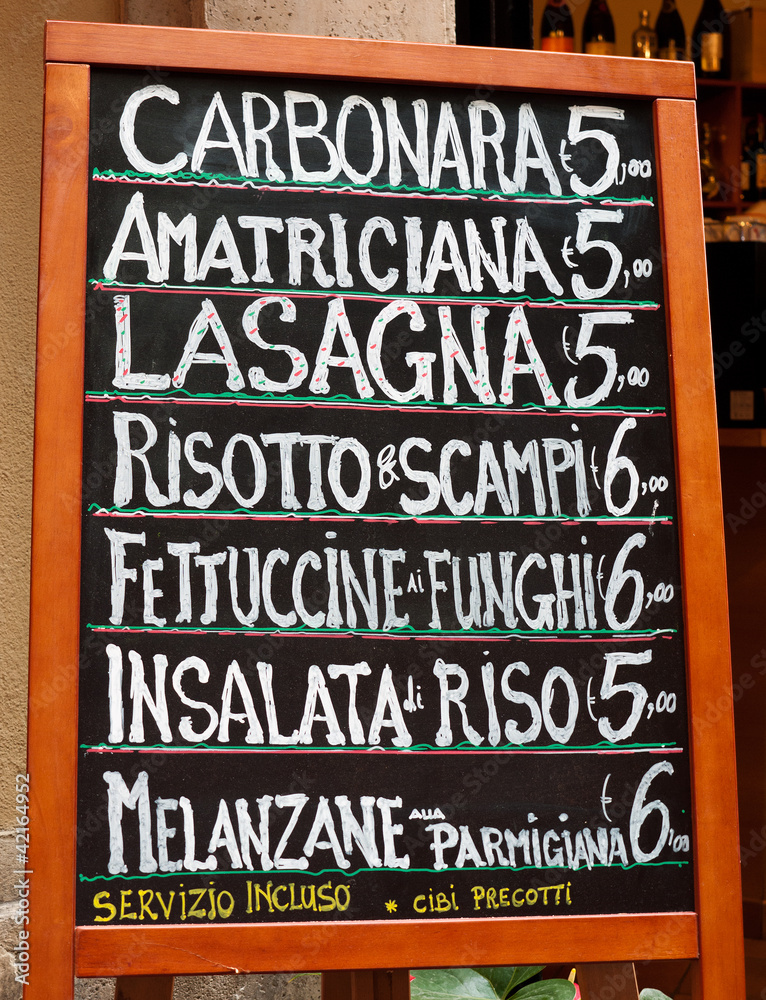 CARBONARA €5,00
AMATRICIANA €5,00
LASAGNA €5,00
RISOTTO & SCAMPI €6,00
FETTUCCINE Ai FUNGHI €6,00
INSALATA di RISO €5,00
MELANZANE ALLA PARMIGIANA €6,00
SERVIZIO INCLUSO * CIBI PRECOTTI
Adobe Stock | #42164952